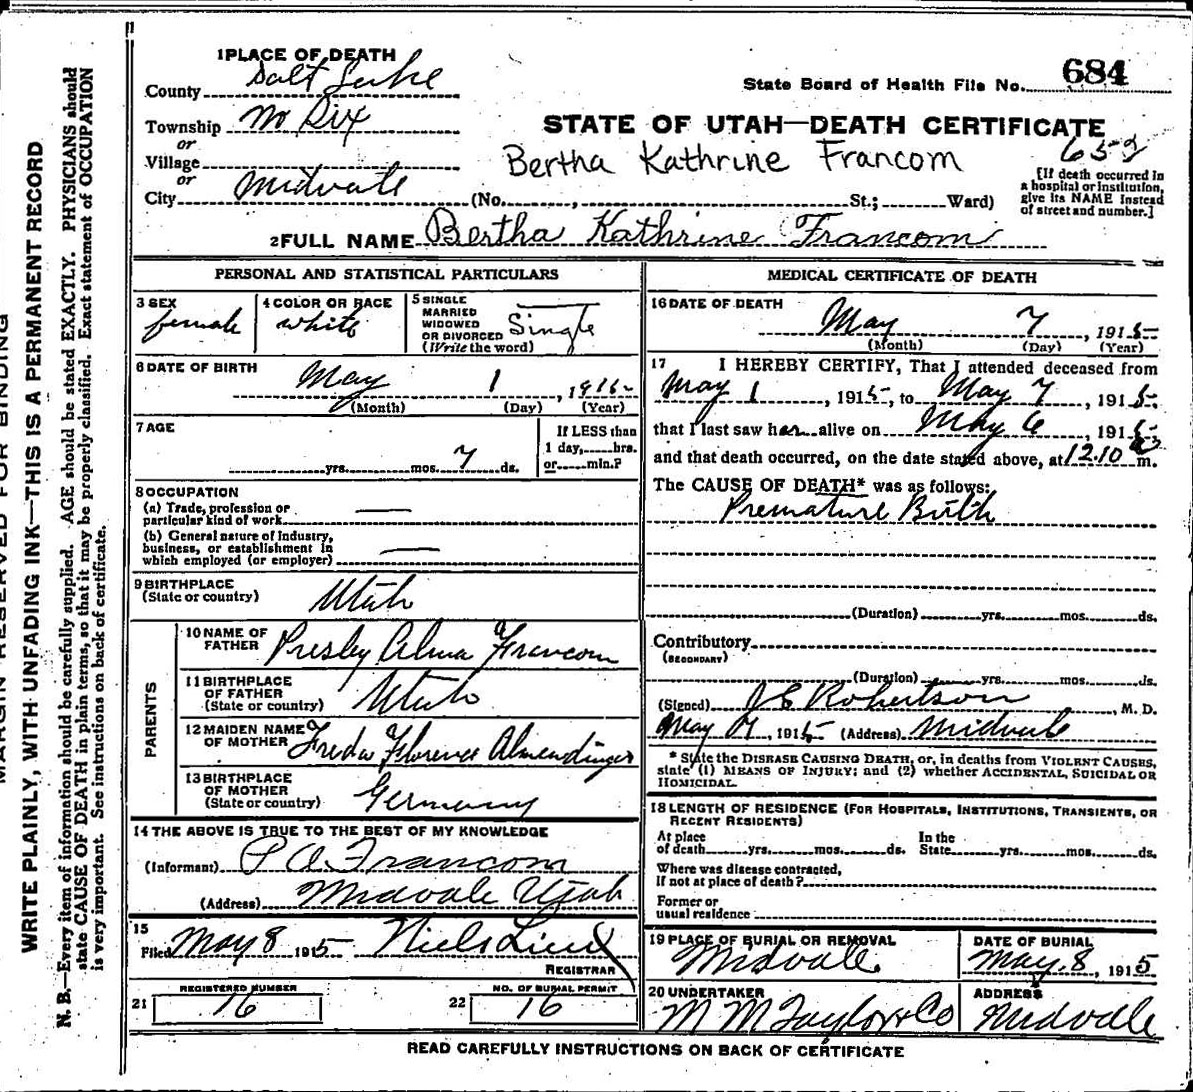 1 PLACE OF DEATH
County Salt Lake
State Board of Health File No. 684
Township No Six
or
Village
or
City Midvale
STATE OF UTAH—DEATH CERTIFICATE
Bertha Kathrine Francom
(No. , St.; Ward)
[If death occurred in
a hospital or institution,
give its NAME instead
of street and number.]
2 FULL NAME Bertha Kathrine Francom
PERSONAL AND STATISTICAL PARTICULARS
3 SEX
female
4 COLOR OR RACE
white
5 SINGLE
MARRIED
WIDOWED
OR DIVORCED
(Write the word)
Single
6 DATE OF BIRTH
May 1, 1915
(Month) (Day) (Year)
7 AGE
yrs. mos. 7 ds.
If LESS than
1 day, hrs.
or min.?
8 OCCUPATION
(a) Trade, profession or
particular kind of work —
(b) General nature of industry,
business, or establishment in
which employed (or employer) —
9 BIRTHPLACE
(State or country) Utah
PARENTS
10 NAME OF
FATHER Presley Alma Francom
11 BIRTHPLACE
OF FATHER
(State or country) Utah
12 MAIDEN NAME
OF MOTHER Freda Florence Almendinger
13 BIRTHPLACE
OF MOTHER
(State or country) Germany
14 THE ABOVE IS TRUE TO THE BEST OF MY KNOWLEDGE
(Informant) P A Francom
(Address) Midvale Utah
15
Filed May 8 1915 Niels Lind
REGISTRAR
21 REGISTERED NUMBER
16
22 NO. OF BURIAL PERMIT
16
MEDICAL CERTIFICATE OF DEATH
16 DATE OF DEATH
May 7, 1915
(Month) (Day) (Year)
17 I HEREBY CERTIFY, That I attended deceased from
May 1, 1915, to May 7, 1915
that I last saw her alive on May 6, 1915
and that death occurred, on the date stated above, at 12.10 a m.
The CAUSE OF DEATH* was as follows:
Premature Birth
(Duration) yrs. mos. ds.
Contributory
(SECONDARY)
(Duration) yrs. mos. ds.
(Signed) J E Robertson, M. D.
May 7, 1915 (Address) Midvale
* State the DISEASE CAUSING DEATH, or, in deaths from VIOLENT CAUSES,
state (1) MEANS OF INJURY; and (2) whether ACCIDENTAL, SUICIDAL OR
HOMICIDAL.
18 LENGTH OF RESIDENCE (FOR HOSPITALS, INSTITUTIONS, TRANSIENTS, OR
RECENT RESIDENTS)
At place
of death yrs. mos. ds.
In the
State yrs. mos. ds.
Where was disease contracted,
If not at place of death?
Former or
usual residence
19 PLACE OF BURIAL OR REMOVAL
Midvale
DATE OF BURIAL
May 8, 1915
20 UNDERTAKER
M M Taylor & Co
ADDRESS
Midvale
READ CAREFULLY INSTRUCTIONS ON BACK OF CERTIFICATE
MARGIN RESERVED FOR BINDING
WRITE PLAINLY, WITH UNFADING INK—THIS IS A PERMANENT RECORD
N. B.—Every item of information should be carefully supplied. AGE should be stated EXACTLY. PHYSICIANS should
state CAUSE OF DEATH in plain terms, so that it may be properly classified. Exact statement of OCCUPATION
is very important. See instructions on back of certificate.